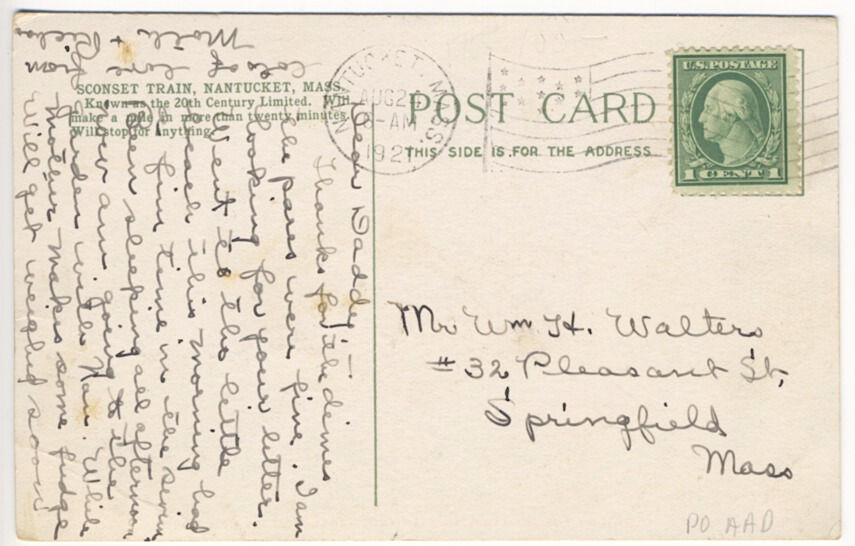 SCONSET TRAIN, NANTUCKET, MASS.
Known as the 20th Century Limited. Will
make a mile in more than twenty minutes
Will stop for anything.
NANTUCKET, MASS.
AUG 2
8-AM
1921
POST CARD
THIS SIDE IS FOR THE ADDRESS
U.S. POSTAGE
1 CENT 1
Dear Daddy -
Thanks for the dimes
the pares were fine. I am
looking for your letter.
Went to the little
beach this morning had
a fine time in the swing
Been sleeping all afternoon
now am going to the
garden with Nan. While
mother makes some fudge
Will get weighed soon
Lots of love from
Moth +
Mr Wm H. Walters
#32 Pleasant St,
Springfield
Mass
PO AAD